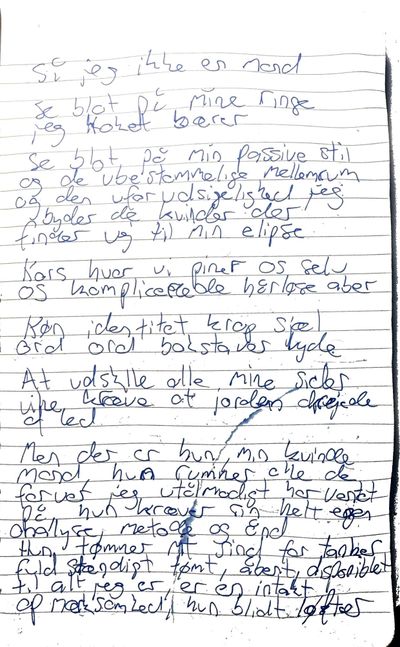 Si jeg ikke er mand
Se blot på mine ringe
jeg kokett bærer
Se blot på min passive stil
og de ubestemmelige mellemrum
og den uforudsigelighed jeg
byder de kvinder der
finder vej til min elipse
Kors hvor vi piner os selv
os komplicerede hårløse aber
Køn identitet krop sjæl
ord ord bokstaver lyde
At udstille alle mine sider
ville kræve at jorden drejede
af led
Men der er hun, min kvinde
mand, hun rummer alle de
farver jeg utålmodigt har ventet
på hun kræver sin helt egen
analyse, metode og ånd
Hun tømmer mit sind for tanker
fuldstændigt tomt, åbent, disponibelt
til alt jeg er, er en intakt
opmærksomhed, hun blidt løfter